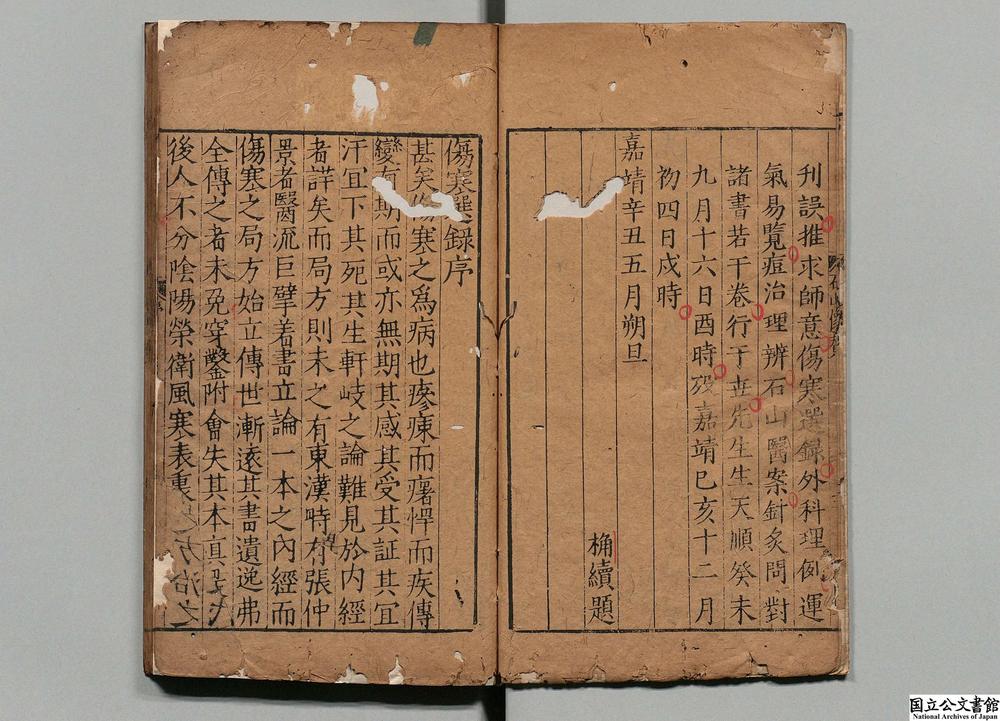 刋誤推求師意傷寒選録外科理例運
氣易覽痘治理辨石山醫案針灸問對
諸書若干卷行于丗先生生天順癸未
九月十六日酉時歿嘉靖巳亥十二月
初四日戌時
嘉靖辛丑五月朔旦
桷續題
傷寒選録序
甚矣傷寒之爲病也瘮㾕而癙悍而疾傳
變有期而或亦無期其感其受其証其宜
汗宜下其死其生軒岐之論難見於內經
者詳矣而局方則未之有東漢時有張仲
景者醫流巨擘着書立論一本之內經而
傷寒之局方始立傳世漸逺其書遺逸弗
全傳之者未免穿鑿附會失其本眞
後人不分陰陽榮衛風寒表裏 方治之
国立公文書館
National Archives of Japan